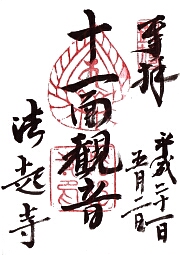 奉拝
平成二十一
五月二日
十一面観音
法起寺